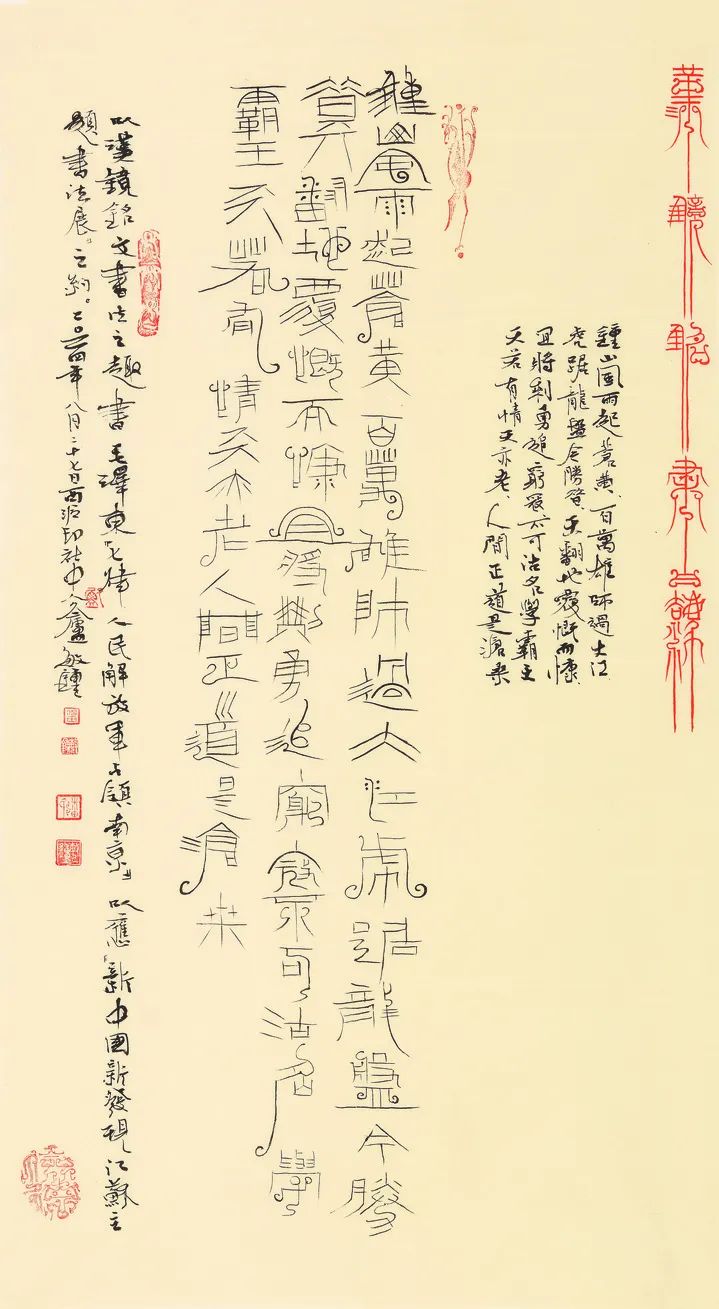 鍾山風雨起蒼黃、百萬雄師過大江
虎踞龍盤今勝昔、天翻地覆慨而慷
宜將剩勇追窮寇、不可沽名學霸王
天若有情天亦老、人間正道是滄桑
鍾山風雨起蒼黃百萬雄師過大江虎踞龍盤今勝
昔天翻地覆慨而慷宜將剩勇追窮寇不可沽名學
霸王天若有情天亦老人間正道是滄桑
以漢鏡銘文書法之趣書毛澤東《七律 人民解放軍占領南京》以應「新中國新發現江蘇主
題書法展」之約。二〇二四年八月二十七日西泠印社中人